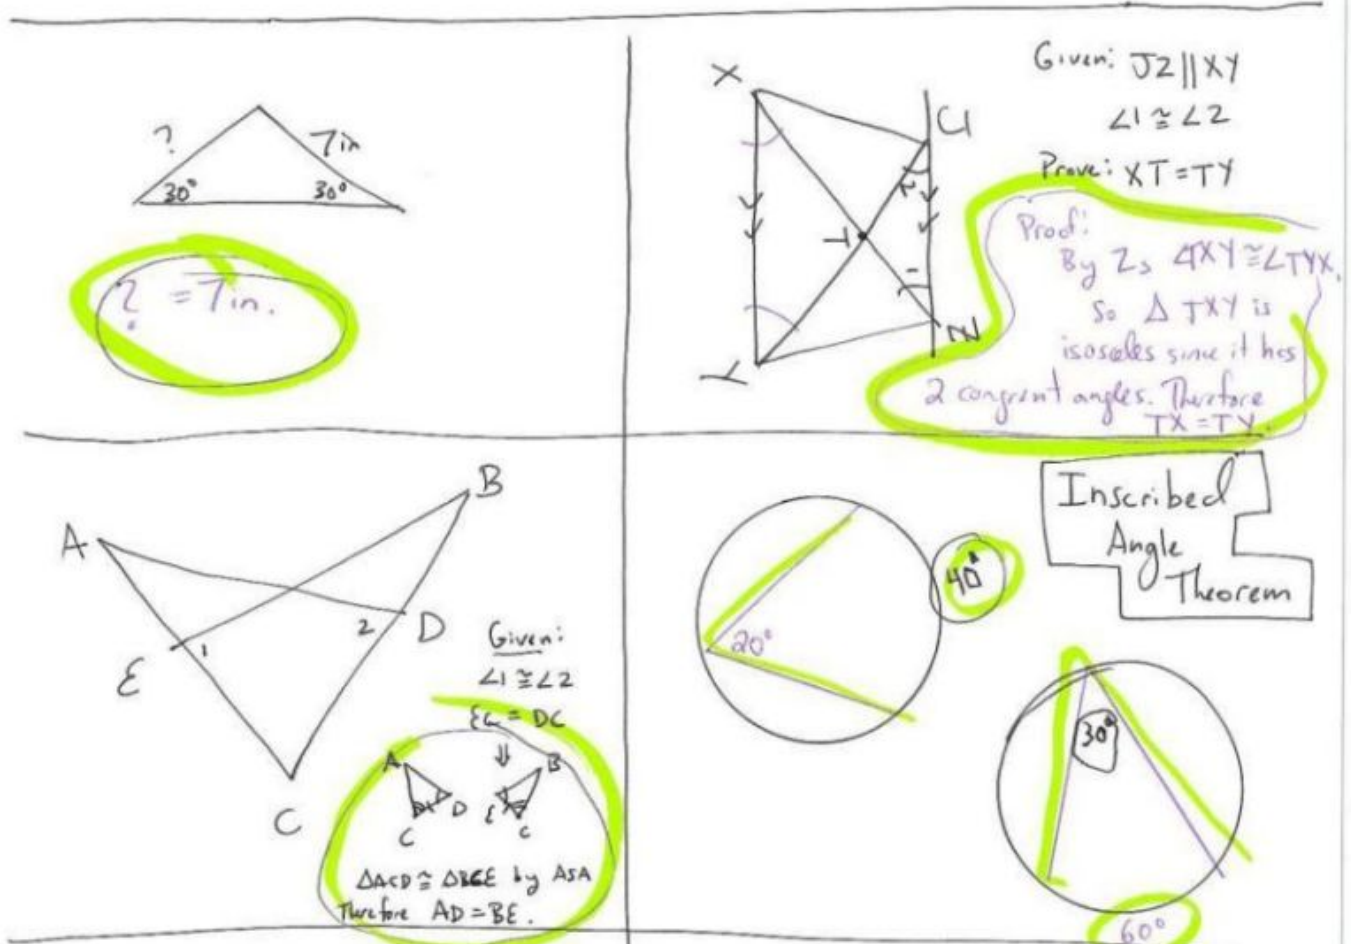 ?
7in
30°
30°
? = 7in.
X
J
2
T
1
Z
Y
Given: JZ || XY
∠1 ≅ ∠2
Prove: XT = TY
Proof:
By Zs ∠TXY ≅ ∠TYX.
So △ TXY is
isosceles since it has
2 congruent angles. Therefore
TX = TY.
A
B
E
1
2
D
C
Given:
∠1 ≅ ∠2
EC = DC
⇓
A
B
D
E
C
C
△ACD ≅ △BCE by ASA
Therefore AD = BE.
Inscribed
Angle
Theorem
40°
20°
30°
60°